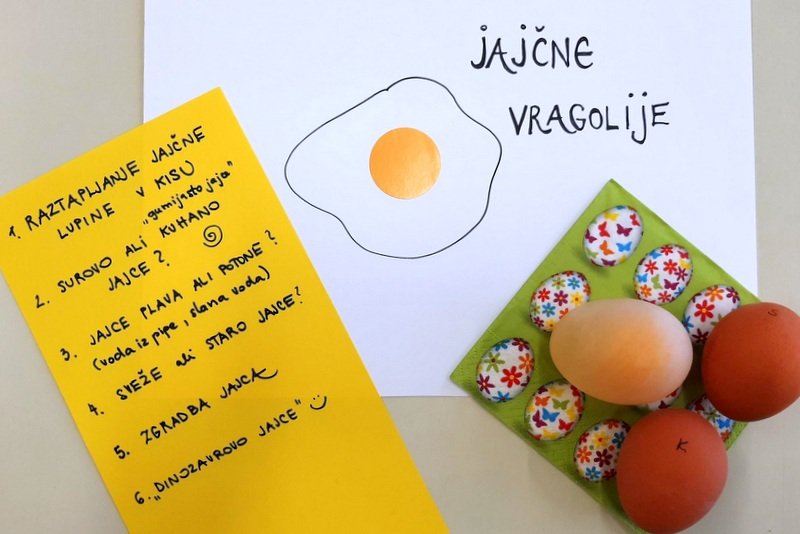 JAJČNE
VRAGOLIJE
1. RAZTAPLJANJE JAJČNE
LUPINE V KISU
„gumijasto jajce"
2. SUROVO ALI KUHANO
JAJCE?
3. JAJCE PLAVA ALI POTONE?
(voda iz pipe, slana voda)
4. SVEŽE ali STARO JAJCE?
5. ZGRADBA JAJCA
6. „DINOZAVROVO JAJCE"
S
K